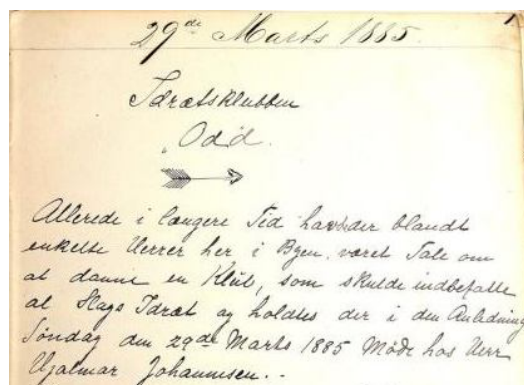 29de Marts 1885.
Idrætsklubben
„Odd.
Allerede i længere Tid har der blandt
enkelte Herrer her i Byen, været Tale om
at danne en Klub, som skulde indbefatte
al Slags Idræt og holdtes der i den Anledning
Søndag den 29de Marts 1885 Møde hos Herr
Hjalmar Johannesen. -